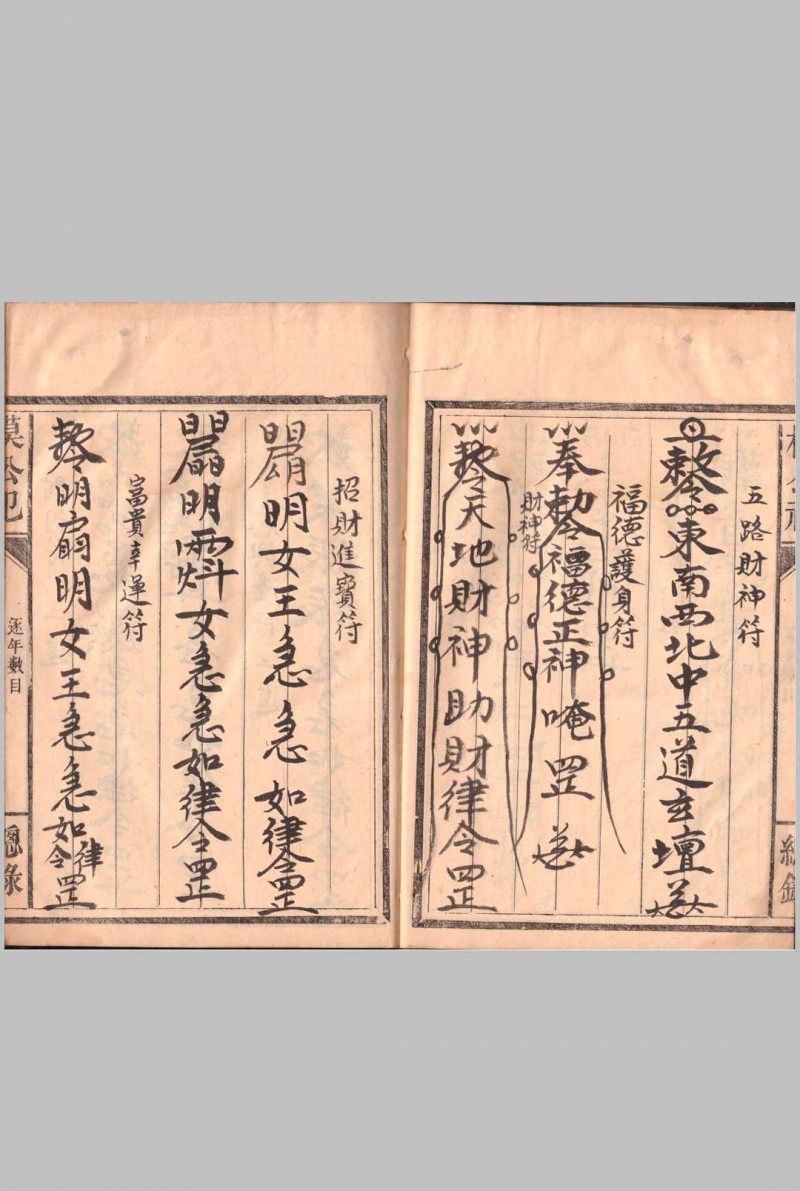 五路財神符
東南西北中五道玄壇
福德護身符
奉勅令福德正神唵罡
財神符
天地財神助財律令罡
招財進寶符
明女王急急如律令罡
明女急急如律令罡
富貴幸運符
明明女王急急如律令罡
逐年數目
總錄